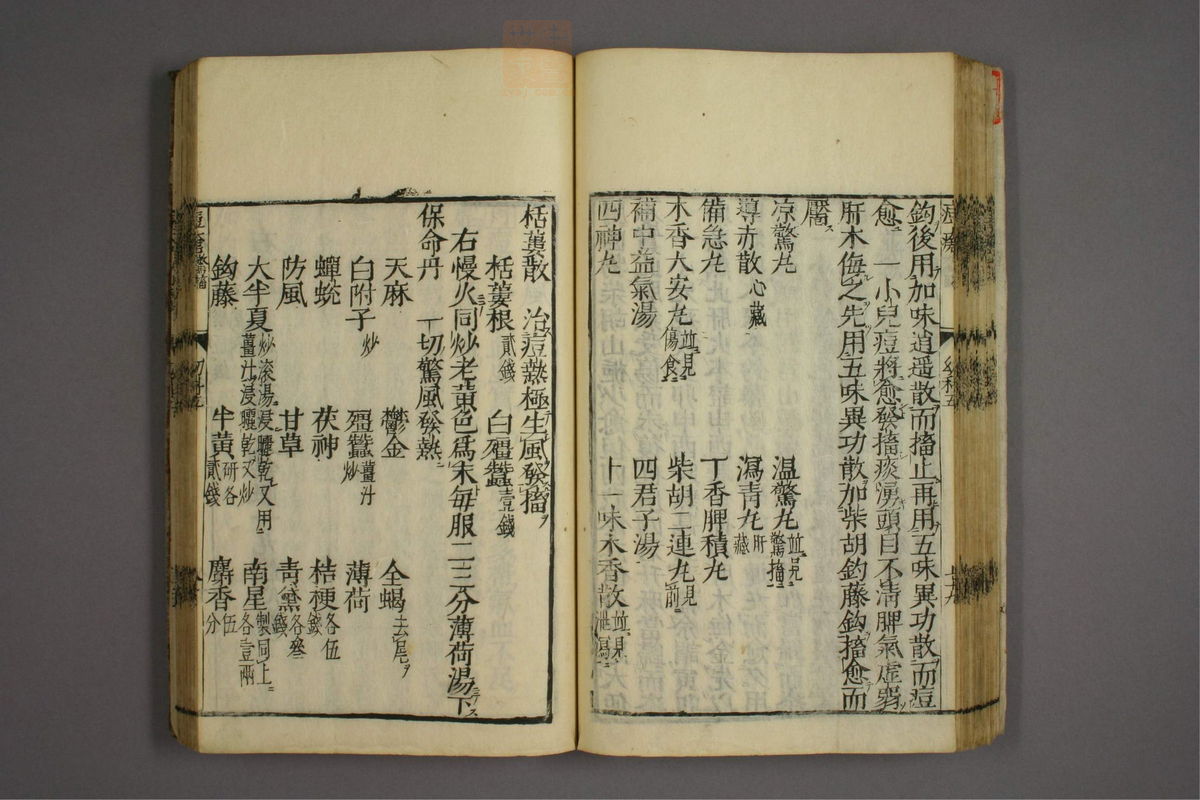 鈎後用加味逍遥散而搐止再用五味異功散而痘
愈 一小兒痘將愈發搐痰湧頭目不清脾氣虚弱
肝木侮之先用五味異功散加柴胡鈎藤鈎搐愈而
靨
凉驚丸 温驚丸並見驚搐
導赤散心藏 瀉青丸肝藏
備急丸 丁香脾積丸
木香大安丸並見傷食 柴胡二連丸見前
補中益氣湯 四君子湯
四神丸 十一味木香散並見泄瀉
栝蔞散 治痘熱極生風發搐
栝蔞根貳錢 白殭蠶壹錢
右慢火同炒老黄色爲末毎服二三分薄荷湯下
保命丹 一切驚風發熱
天麻 鬱金 全蝎去尾
白附子炒 殭蠶薑汁炒 薄荷
蟬蛻 茯神 桔梗各伍錢
防風 甘草 青黛各叁錢
大半夏炒滚湯浸曬乾又用薑汁浸曬乾又炒 南星製同上各壹兩
鈎藤 牛黄研各貳錢 麝香伍分